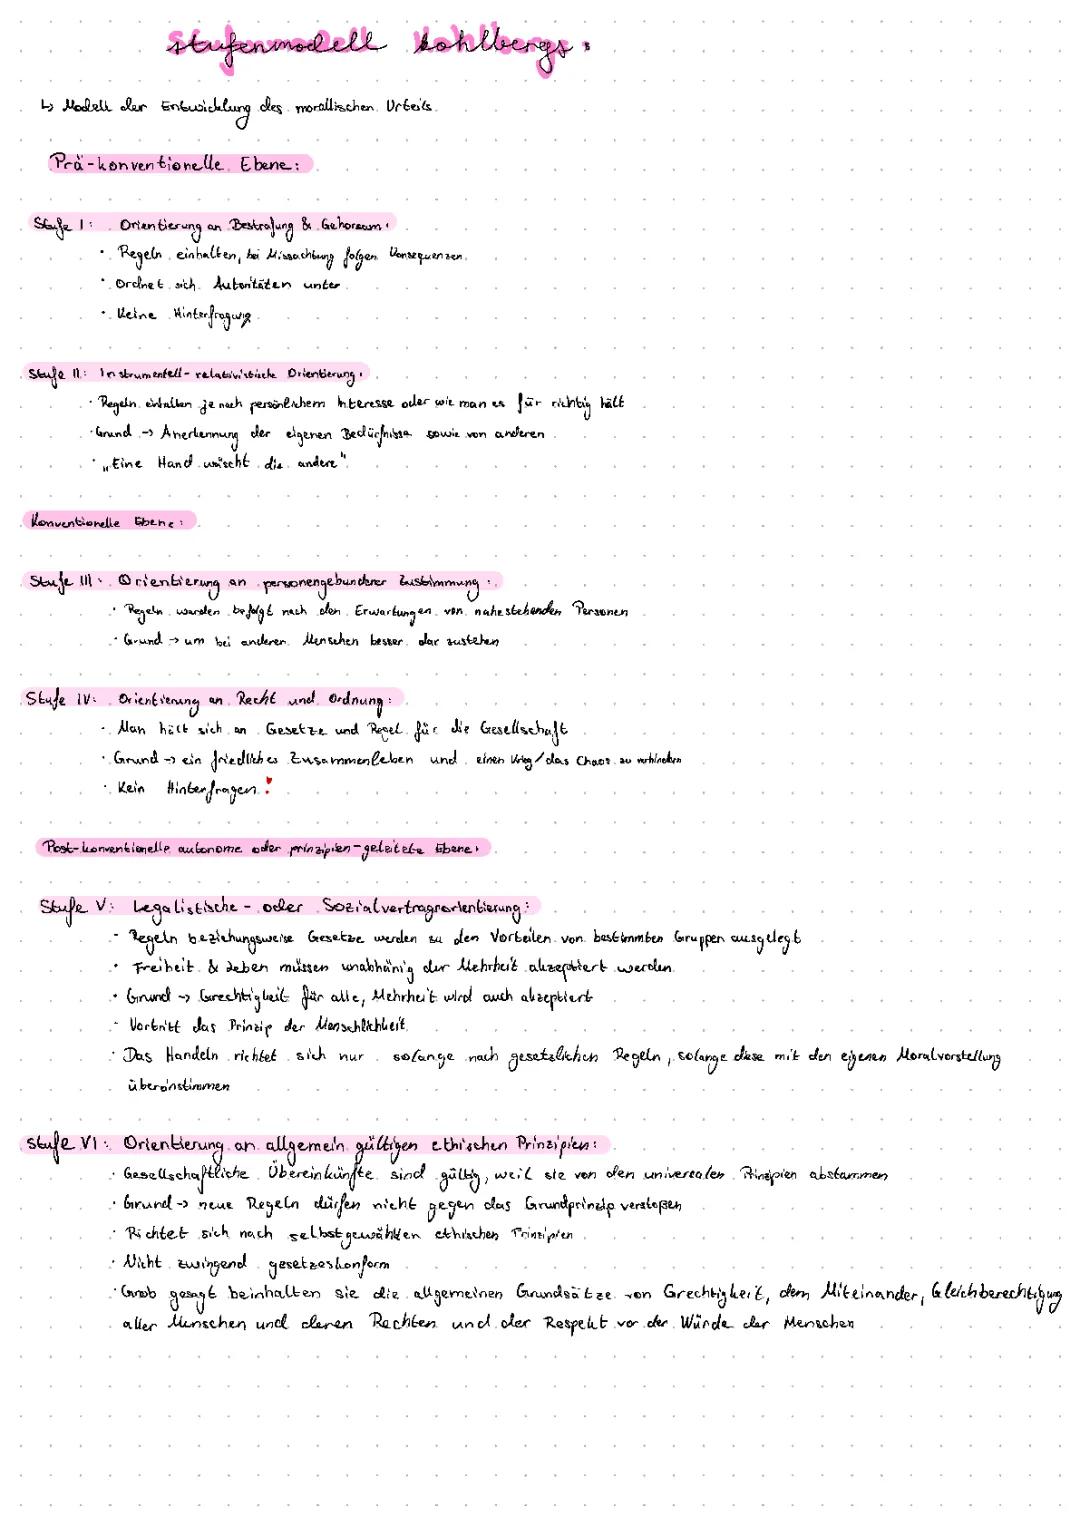 Stufenmodell Kohlbergs:
↳ Modell der Entwicklung des morallischen Urteils.
Prä-konventionelle Ebene:
Stufe I: Orientierung an Bestrafung & Gehorsam:
· Regeln einhalten, bei Missachtung folgen Konsequenzen.
· Ordnet sich Autoritäten unter
· Keine Hinterfragung
Stufe II: Instrumentell-relativistische Orientierung:
· Regeln einhalten je nach persönlichem Interesse oder wie man es für richtig hält
· Grund → Anerkennung der eigenen Bedürfnisse sowie von anderen
· „Eine Hand wäscht die andere"
Konventionelle Ebene:
Stufe III: Orientierung an personengebundener Zustimmung:
· Regeln werden befolgt nach den Erwartungen von nahestehenden Personen
· Grund → um bei anderen Menschen besser dar zustehen
Stufe IV: Orientierung an Recht und Ordnung:
· Man hält sich an Gesetze und Regel für die Gesellschaft
· Grund → ein friedliches Zusammenleben und einen Krieg/das Chaos zu verhindern
· Kein Hinterfragen!
Post-konventionelle autonome oder prinzipien-geleitete Ebene:
Stufe V: Legalistische- oder Sozialvertragsorientierung:
- Regeln beziehungsweise Gesetze werden zu den Vorteilen von bestimmten Gruppen ausgelegt
· Freiheit & Leben müssen unabhänig der Mehrheit akzeptiert werden
· Grund → Gerechtigkeit für alle, Mehrheit wird auch akzeptiert
- Vertritt das Prinzip der Menschlichkeit
· Das Handeln richtet sich nur solange nach gesetzlichen Regeln, solange diese mit den eigenen Moralvorstellung
übereinstimmen
Stufe VI: Orientierung an allgemein gültigen ethischen Prinzipien:
· Gesellschaftliche Übereinkünfte sind gültig, weil sie von den universalen Prinzipien abstammen
· Grund → neue Regeln dürfen nicht gegen das Grundprinzip verstoßen
· Richtet sich nach selbstgewählten ethischen Prinzipien
· Nicht zwingend gesetzeskonform
· Grob gesagt beinhalten sie die allgemeinen Grundsätze von Grechtigkeit, dem Miteinander, Gleichberechtigung
aller Menschen und deren Rechten und der Respekt vor der Würde der Menschen